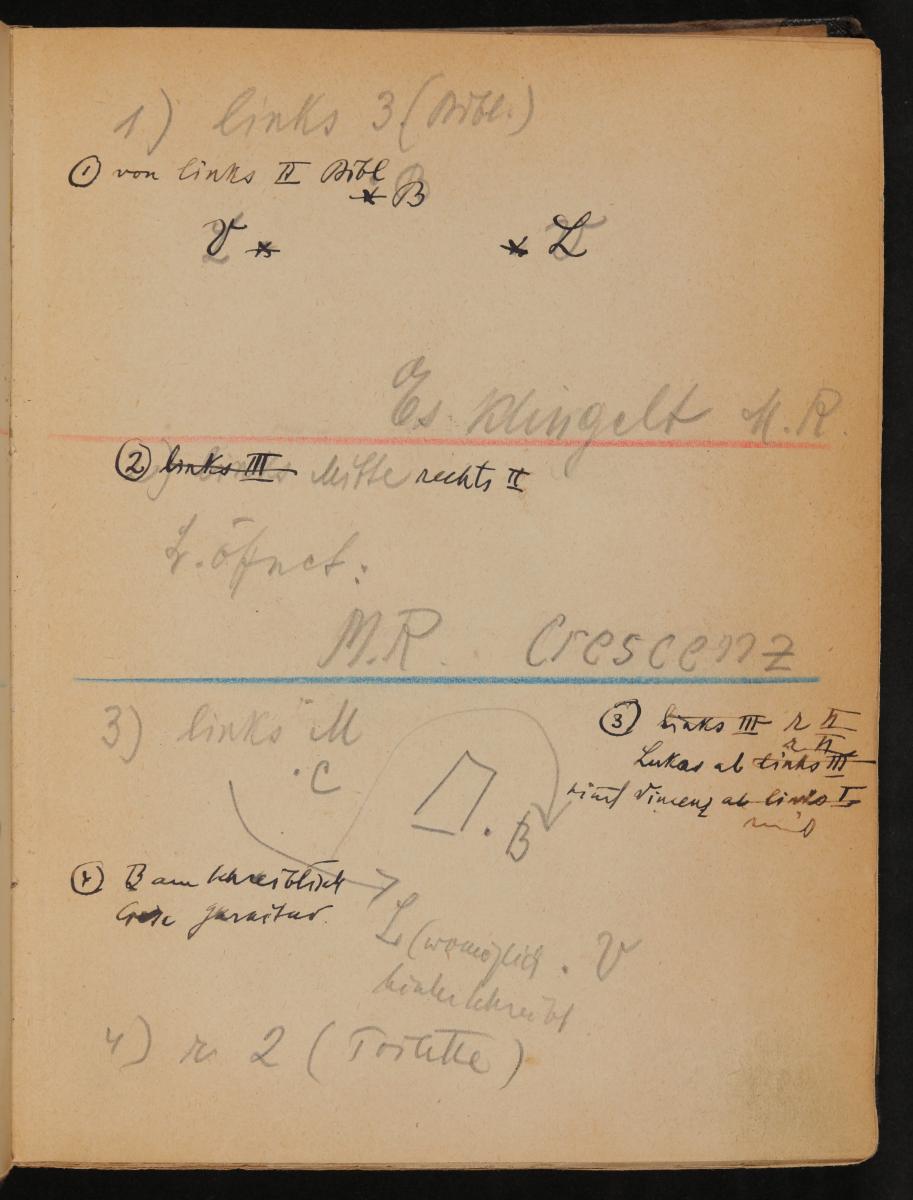 1) links 3 (Bibl.)
① von links II Bibl
B
V L
Es klingelt M.R.
② links III Mitte rechts II
L. öfnet:
M.R. Crescenz
3) links M
③ links III r II
r II
Lukas ab links III
Vincenz ab links I
C
B
④ B am Schreibtisch
Garnitur.
L (womöglich . V
4) r. 2 (Toilette)